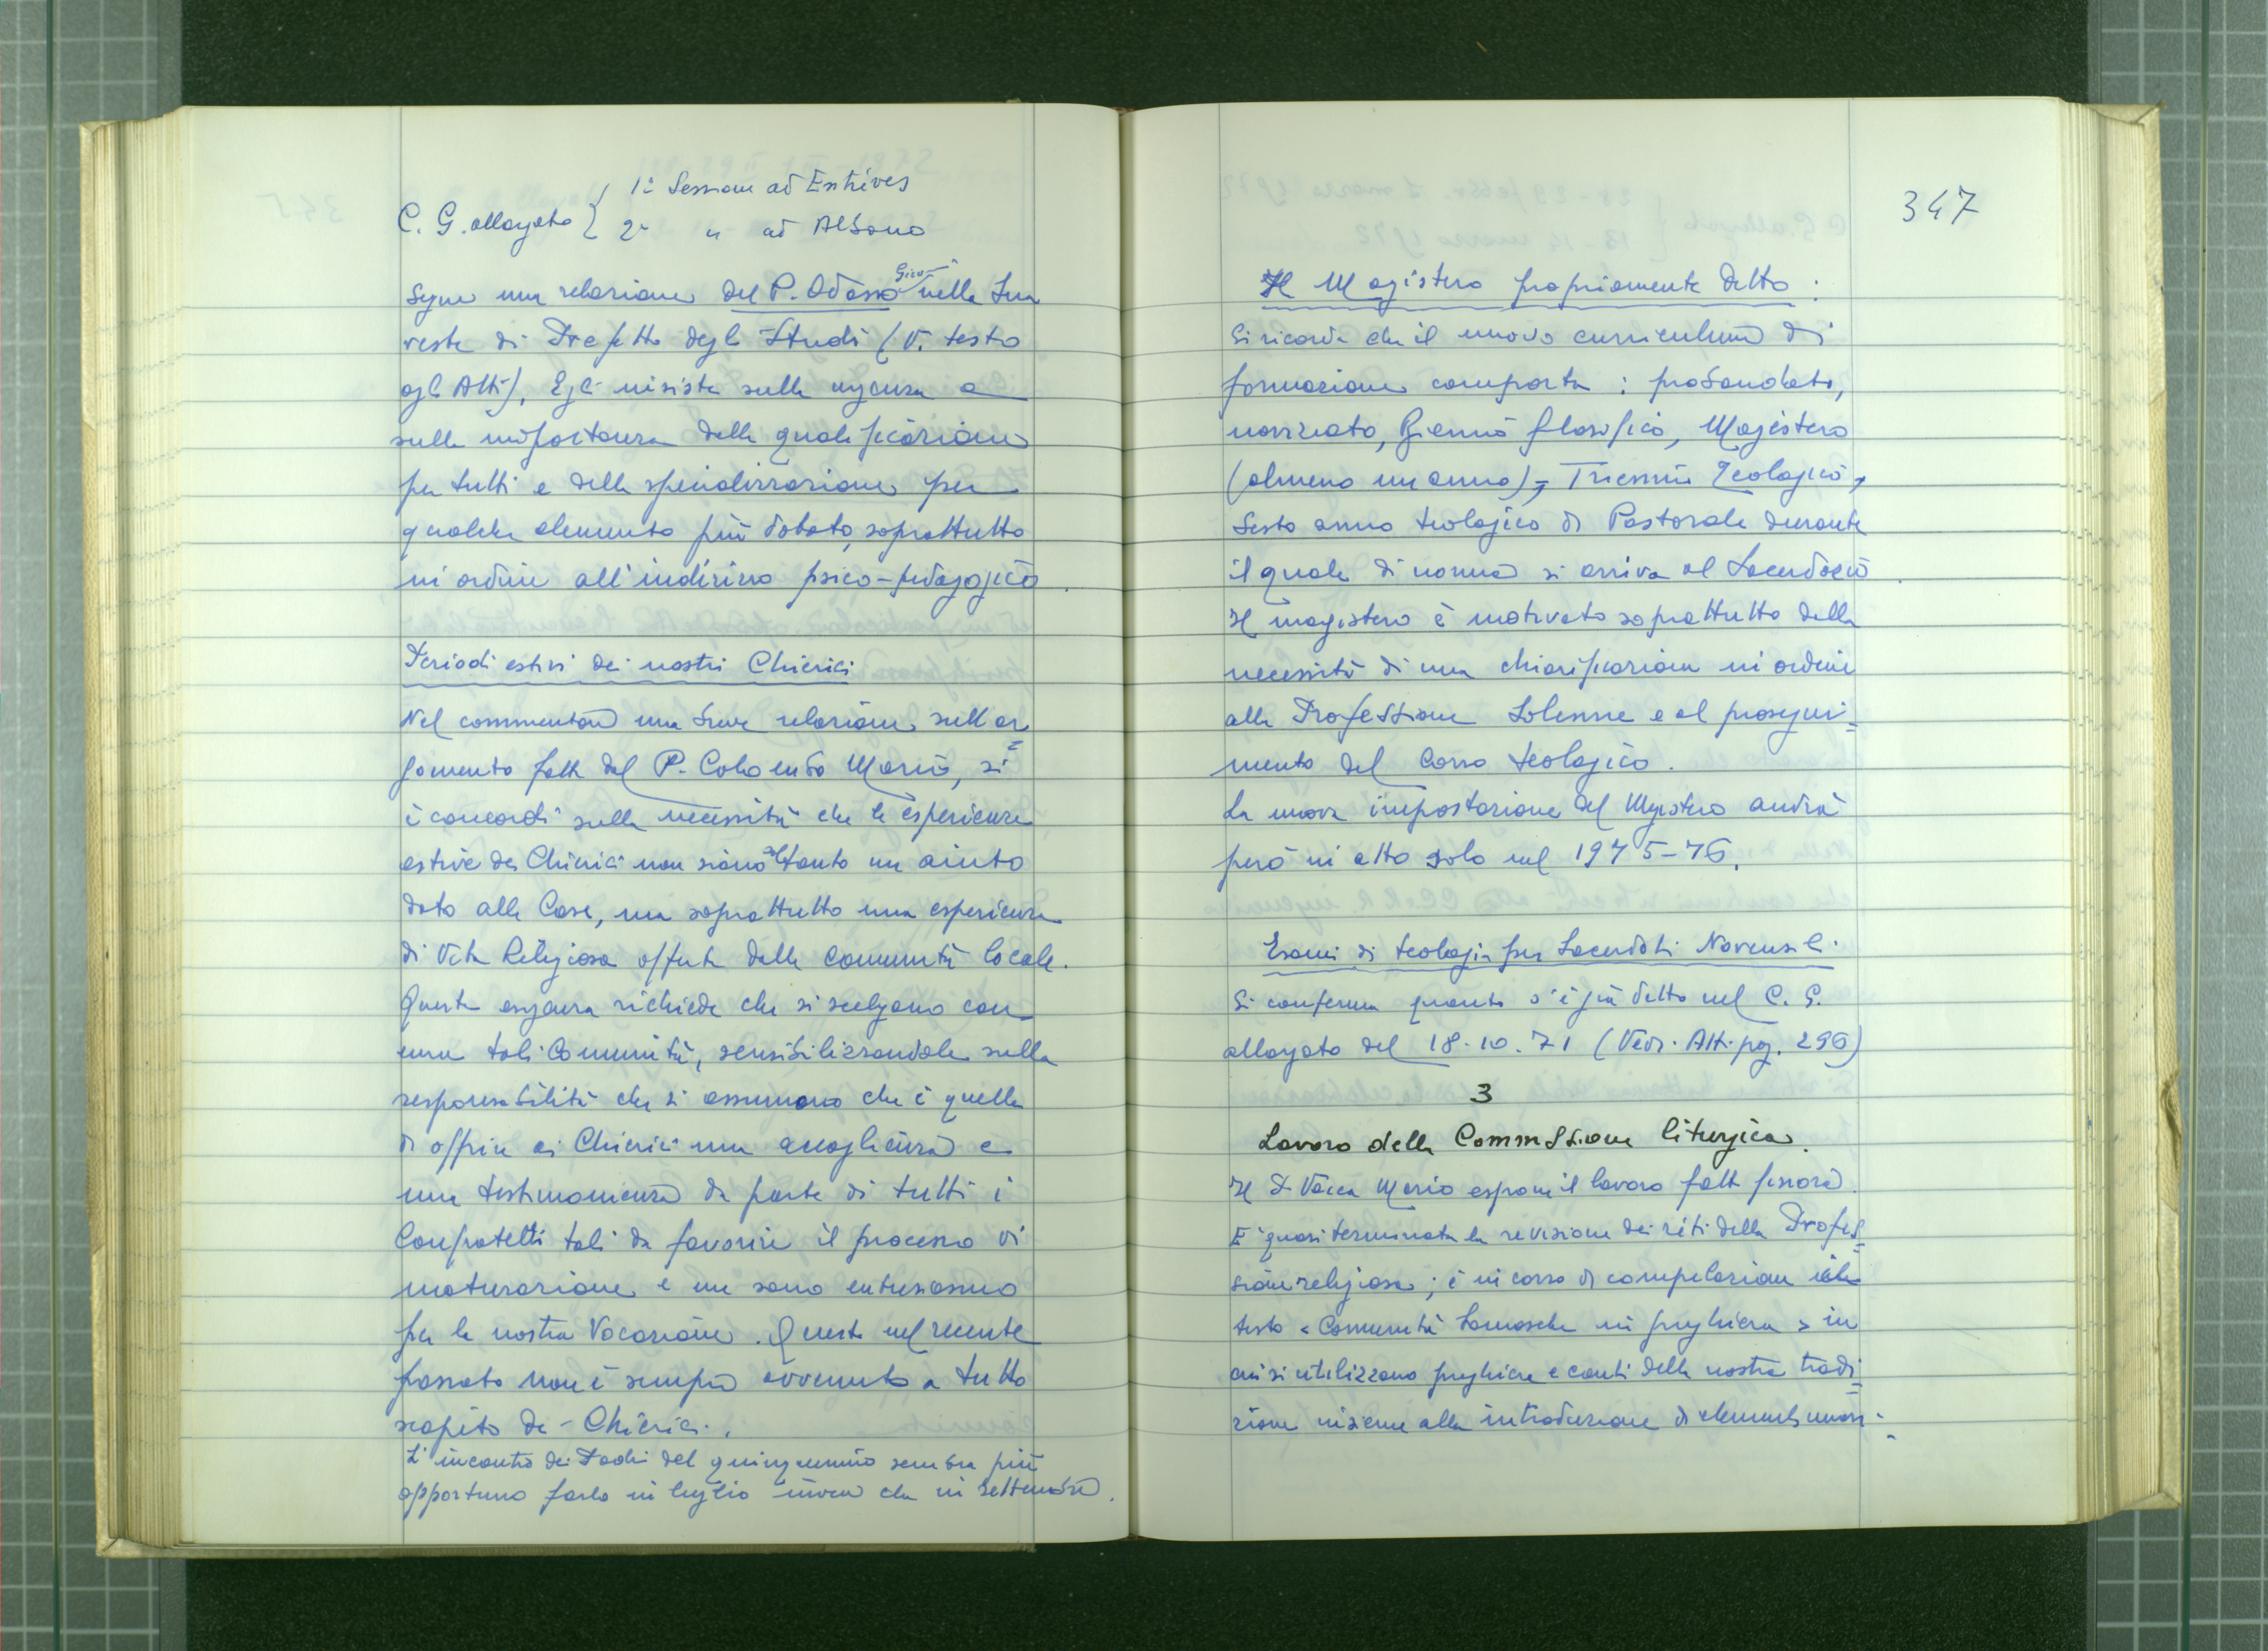 C. G. allargato { 1ª Sessione ad Entrèves
2ª " ad Albano
Segue una relazione del P. Odasso Giov. nella sua
veste di Prefetto degli Studi (V. testo
agli Atti). Egli insiste sulla urgenza e
sulla importanza della qualificazione
per tutti e della specializzazione per
qualche elemento più dotato, soprattutto
in ordine all'indirizzo psico-pedagogico.
Periodi estivi dei nostri Chierici
Nel commentare una breve relazione sull'ar=
gomento fatta dal P. Colombo Mario, si
è concordi sulla necessità che le esperienze
estive dei Chierici non siano soltanto un aiuto
dato alle Case, ma soprattutto una esperienza
di Vita Religiosa offerta dalla Comunità locale.
Questa esigenza richiede che si scelgano con
cura tali Comunità, sensibilizzandole sulla
responsabilità che si assumono che è quella
di offrire ai Chierici una accoglienza e
una testimonianza da parte di tutti i
Confratelli tali da favorire il processo di
maturazione e un sano entusiasmo
per la nostra Vocazione. Questo nel recente
passato non è sempre avvenuto a tutto
scapito dei Chierici.
L'incontro dei Padri del quinquennio sembra più
opportuno farlo in luglio invece che in settembre.
347
Il Magistero propriamente detto:
Si ricorda che il nuovo curriculum di
formazione comporta: probandato,
noviziato, Biennio filosofico, Magistero
(almeno un anno), Triennio Teologico,
Sesto anno teologico di Pastorale durante
il quale di norma si arriva al Sacerdozio.
Il magistero è motivato soprattutto dalla
necessità di una chiarificazione in ordine
alla Professione Solenne e al prosegui=
mento del Corso teologico.
La nuova impostazione del Magistero andrà
però in atto solo nel 1975-76.
Esami di teologia per Sacerdoti Novensili.
Si conferma quanto s'è già detto nel C. G.
allargato del 18.10.71 (Vedi Atti pag. 296)
3
Lavoro della Commissione liturgica.
Il P. Vacca Mario espone il lavoro fatto finora.
E' quasi terminata la revisione dei riti della Profes=
sione religiosa; è in corso di compilazione il
testo «Comunità Somasche in preghiera» in
cui si utilizzano preghiere e canti della nostra tradi=
zione insieme alla introduzione di elementi nuovi.